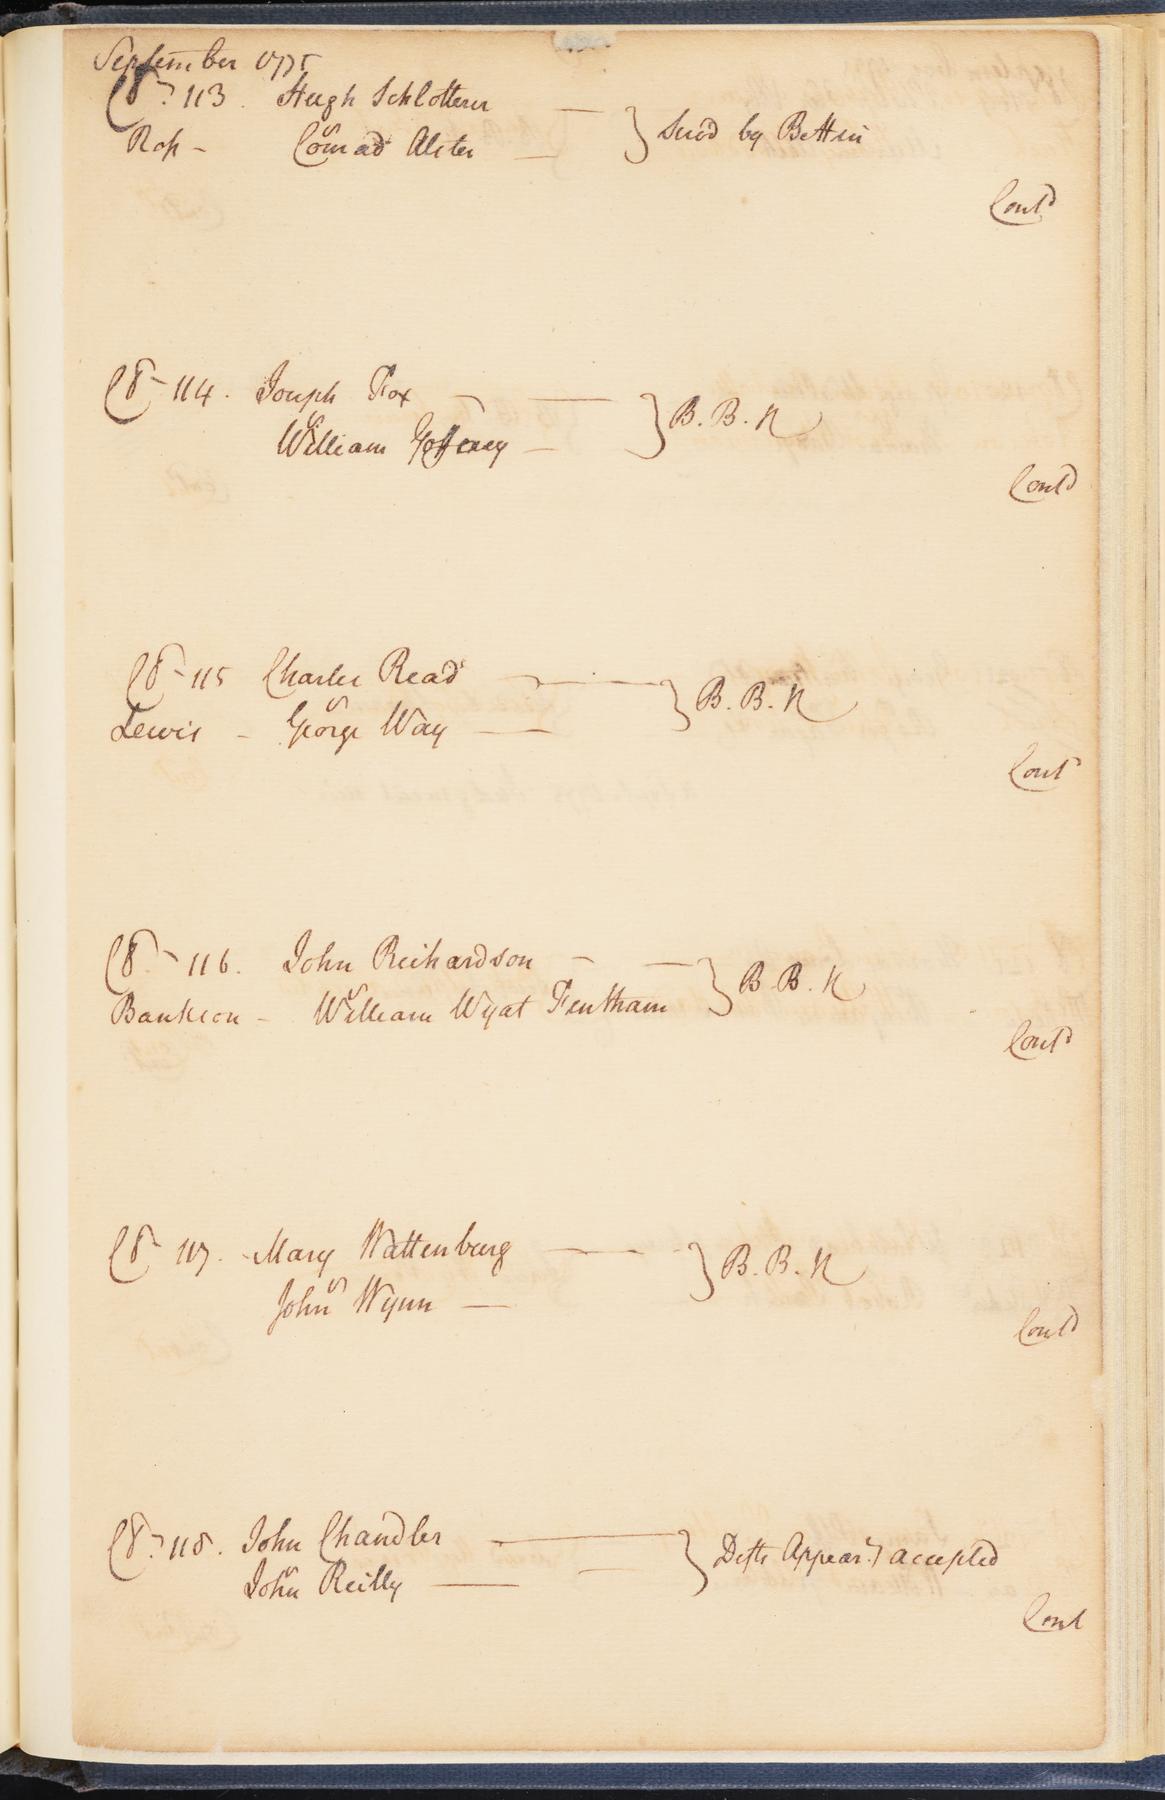 September 1775
113. Hugh Schlotterer
Ross - Conrad Alster } Serv'd by Bettin
Cont'd
114. Joseph Fox
vs
William } B. B. N
Cont'd
115 Charles Read
vs
Lewis - George Way } B. B. N
Cont'd
116. John Reichardson
vs
Bankson - William Wyat Fentham } B. B. N
Cont'd
117. Mary Wattenburg
vs
John Wynn } B. B. N
Cont'd
118. John Chandler
vs
John Reilly } Defts Appear. accepted
Cont